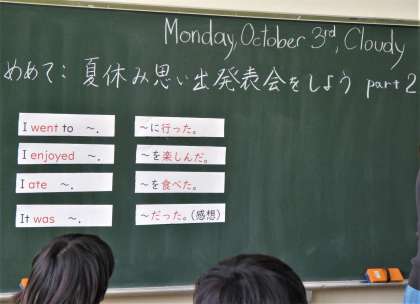 Monday, October 3rd, Cloudy
めめて: 夏休み思い出発表会をしよう part 2
I went to ~. ~に行った。
I enjoyed ~. ~を楽しんだ。
I ate ~. ~を食べた。
It was ~. ~だった。(感想)